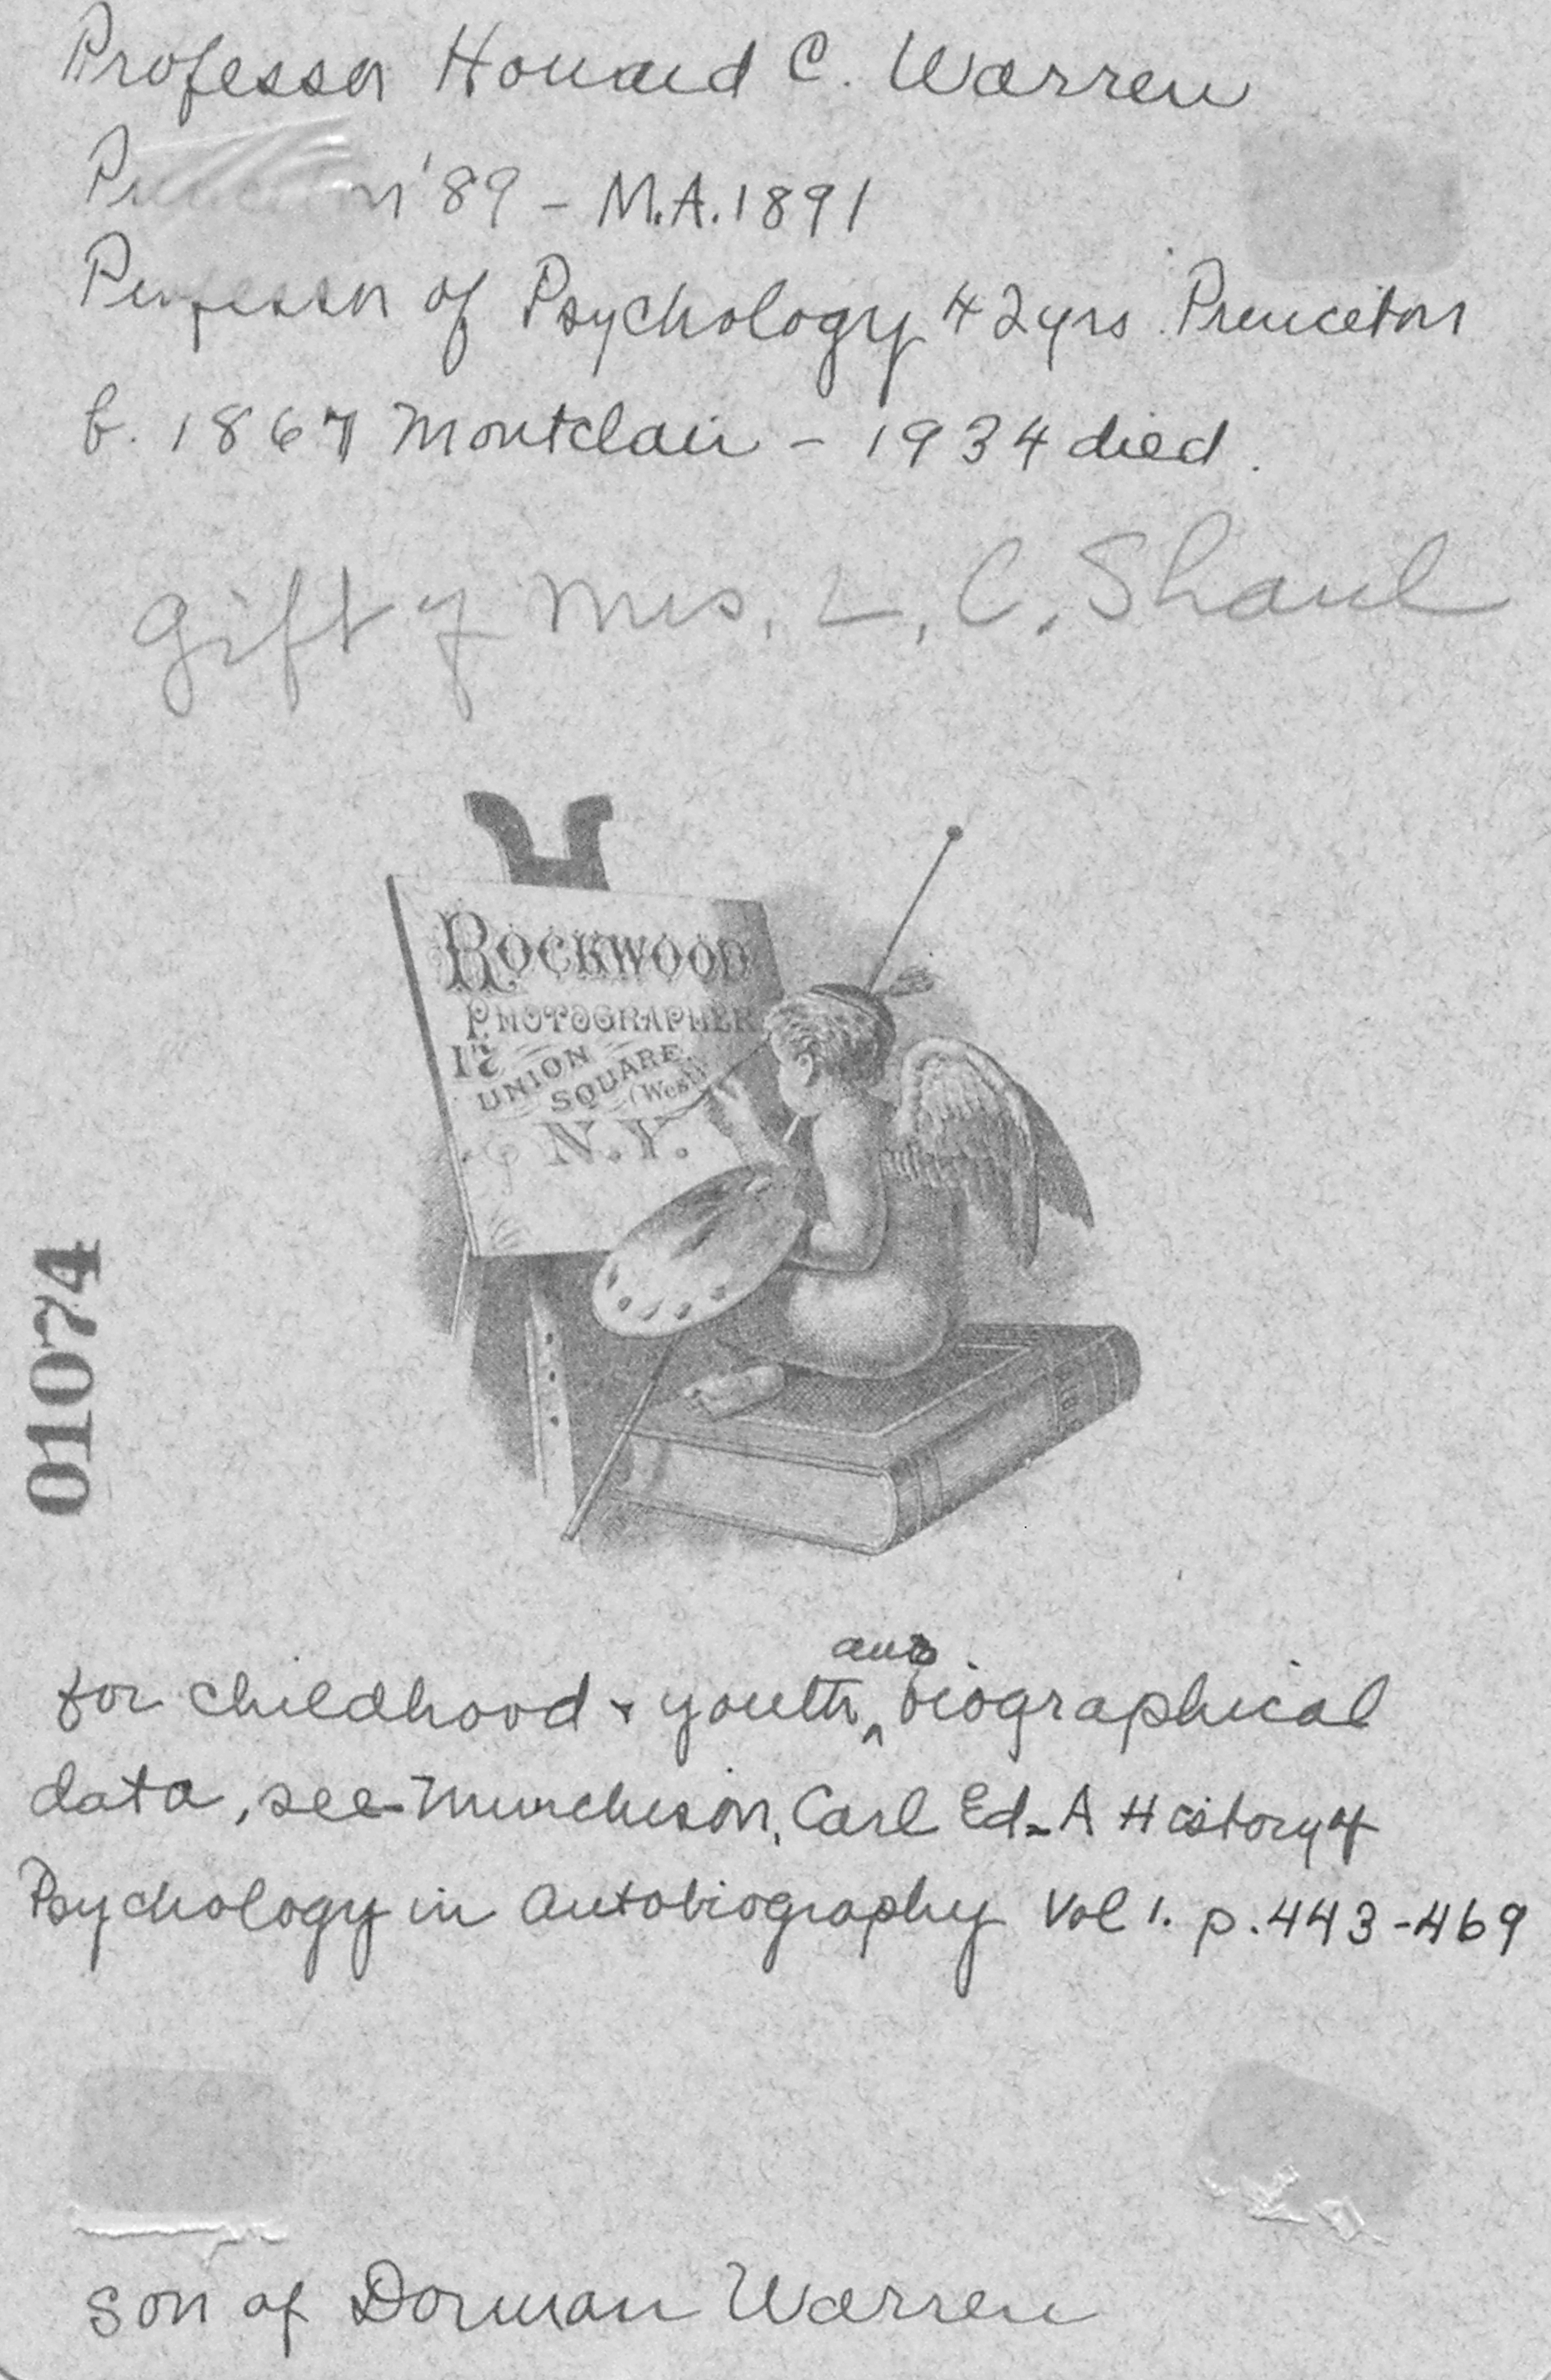 Professor Howard C. Warren
Princeton '89 - M.A. 1891
Professor of Psychology 42 yrs. Princeton
b. 1867 Montclair - 1934 died.
Gift of Mrs. L. C. Shaul
ROCKWOOD
PHOTOGRAPHER
17
UNION
SQUARE
(West)
N.Y.
01074
and
for childhood & youth ^ biographical
data, see - Murchison, Carl Ed - A History of
Psychology in Autobiography Vol 1. p. 443-469
son of Dorman Warren